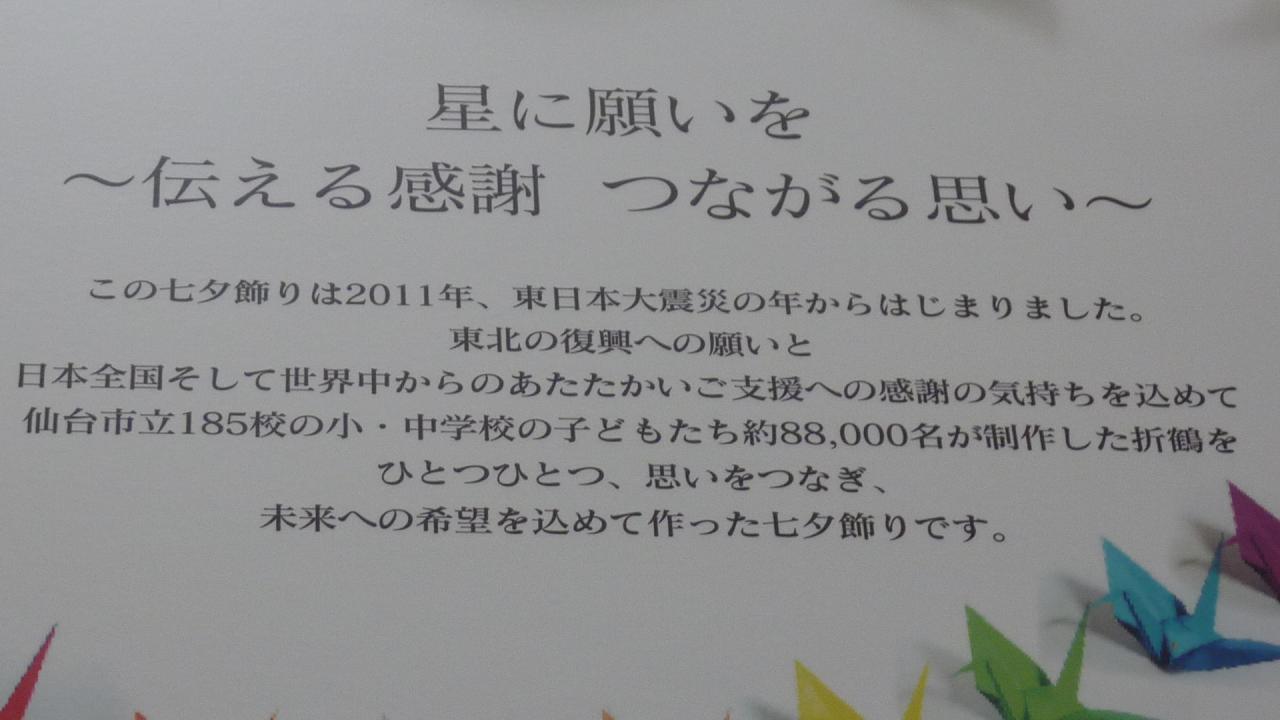 星に願いを
～伝える感謝　つながる思い～
この七夕飾りは2011年、東日本大震災の年からはじまりました。
東北の復興への願いと
日本全国そして世界中からのあたたかいご支援への感謝の気持ちを込めて
仙台市立185校の小・中学校の子どもたち約88,000名が制作した折鶴を
ひとつひとつ、思いをつなぎ、
未来への希望を込めて作った七夕飾りです。